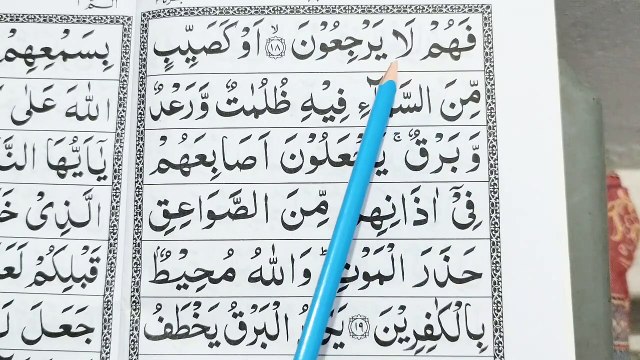 فَهُمْ لَا يَرْجِعُوْنَ ۙ ﴿۱۸﴾ اَوْ كَصَيِّبٍ
مِّنَ السَّمَآءِ فِيْهِ ظُلُمٰتٌ وَّرَعْدٌ
وَّبَرْقٌ ۚ يَجْعَلُوْنَ اَصَابِعَهُمْ
فِيْٓ اٰذَانِهِمْ مِّنَ الصَّوَاعِقِ
حَذَرَ الْمَوْتِ ؕ وَاللّٰهُ مُحِيْطٌۢ
بِالْكٰفِرِيْنَ ﴿۱۹﴾ الْبَرْقُ يَخْطَفُ
بِسَمْعِهِمْ
اللّٰهَ عَلٰى
يٰٓاَيُّهَا
الَّذِيْ
قَبْلِكُمْ
جَعَلَ